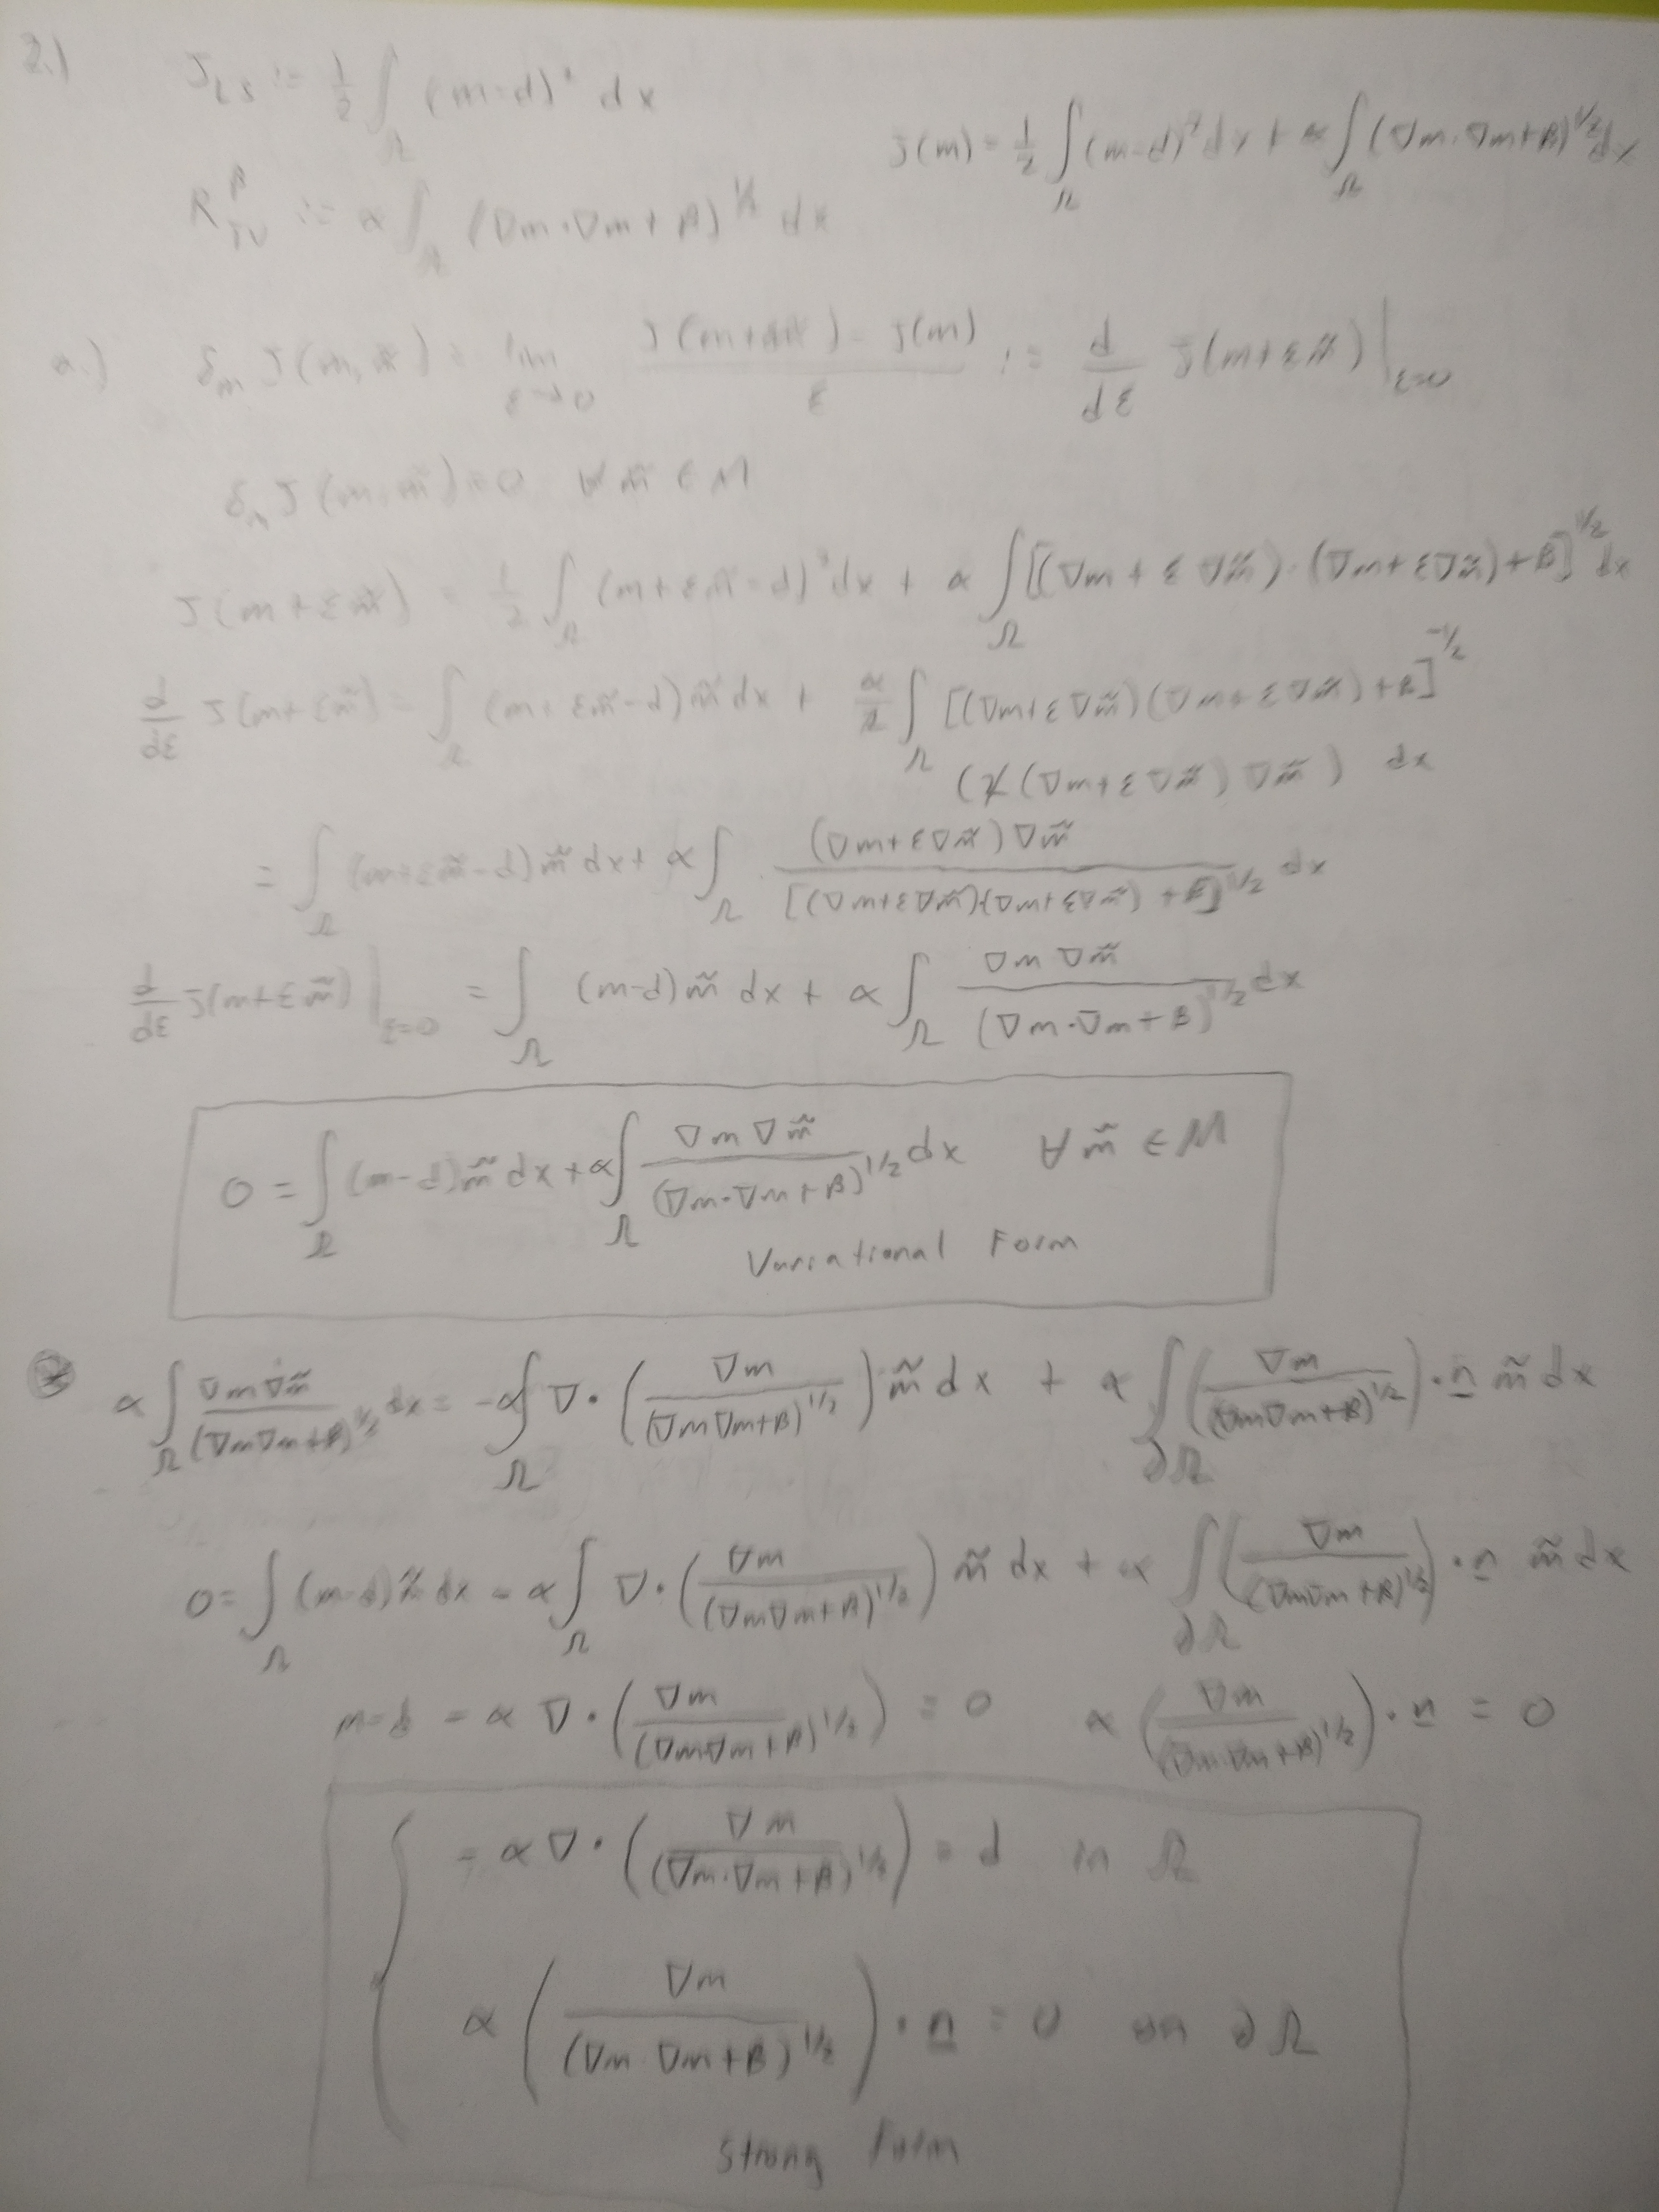 2.) J_LS := 1/2 ∫_Ω (m-d)² dx
J(m) = 1/2 ∫_Ω (m-d)² dx + α ∫_Ω (∇m·∇m+β)^1/2 dx
R_TV^β := α ∫_Ω (∇m·∇m+β)^1/2 dx
a.) δ_m J(m, m̃) = lim_ε→0 (J(m+εm̃) - J(m))/ε := d/dε J(m+εm̃)|_ε=0
δ_m J(m, m̃) = 0 ∀ m̃ ∈ M
J(m+εm̃) = 1/2 ∫_Ω (m+εm̃-d)² dx + α ∫_Ω [(∇m+ε∇m̃)·(∇m+ε∇m̃)+β]^1/2 dx
d/dε J(m+εm̃) = ∫_Ω (m+εm̃-d)m̃ dx + α/2 ∫_Ω [(∇m+ε∇m̃)(∇m+ε∇m̃)+β]^-1/2
(2(∇m+ε∇m̃)∇m̃) dx
= ∫_Ω (m+εm̃-d)m̃ dx + α ∫_Ω (∇m+ε∇m̃)∇m̃ / [(∇m+ε∇m̃)(∇m+ε∇m̃)+β]^1/2 dx
d/dε J(m+εm̃)|_ε=0 = ∫_Ω (m-d)m̃ dx + α ∫_Ω ∇m∇m̃ / (∇m·∇m+β)^1/2 dx
0 = ∫_Ω (m-d)m̃ dx + α ∫_Ω ∇m∇m̃ / (∇m·∇m+β)^1/2 dx ∀ m̃ ∈ M
Variational Form
α ∫_Ω ∇m∇m̃ / (∇m∇m+β)^1/2 dx = -α ∫_Ω ∇·(∇m / (∇m∇m+β)^1/2) m̃ dx + α ∫_∂Ω (∇m / (∇m∇m+β)^1/2)·n m̃ dx
0 = ∫_Ω (m-d)m̃ dx - α ∫_Ω ∇·(∇m / (∇m∇m+β)^1/2) m̃ dx + α ∫_∂Ω (∇m / (∇m∇m+β)^1/2)·n m̃ dx
m-d - α ∇·(∇m / (∇m∇m+β)^1/2) = 0 α (∇m / (∇m·∇m+β)^1/2)·n = 0
{ -α∇·(∇m / (∇m·∇m+β)^1/2) = d in Ω
α (∇m / (∇m·∇m+β)^1/2)·n = 0 on ∂Ω
Strong Form